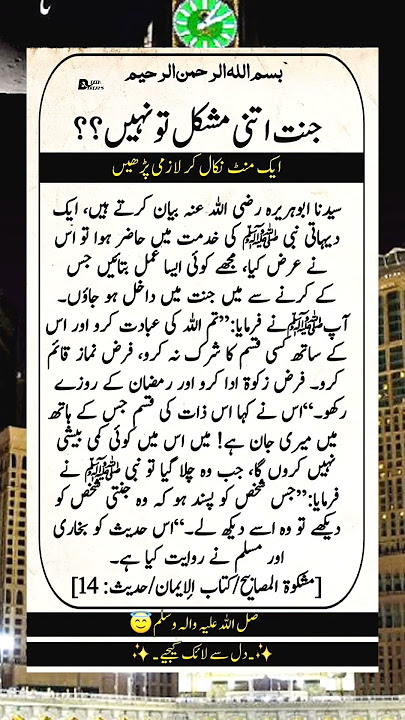 بسم اللہ الرحمن الرحیم
جنت اتنی مشکل تو نہیں؟؟
ایک منٹ نکال کر لازمی پڑھیں
سیدنا ابوہریرہ رضی اللہ عنہ بیان کرتے ہیں، ایک
دیہاتی نبی ﷺ کی خدمت میں حاضر ہوا تو اس
نے عرض کیا، مجھے کوئی ایسا عمل بتائیں جس
کے کرنے سے میں جنت میں داخل ہو جاؤں۔
آپ ﷺ نے فرمایا:”تم اللہ کی عبادت کرو اور اس
کے ساتھ کسی قسم کا شرک نہ کرو، فرض نماز قائم
کرو۔ فرض زکوۃ ادا کرو اور رمضان کے روزے
رکھو۔“اس نے کہا اس ذات کی قسم جس کے ہاتھ
میں میری جان ہے! میں اس میں کوئی کمی بیشی
نہیں کروں گا، جب وہ چلا گیا تو نبی ﷺ نے
فرمایا:”جس شخص کو پسند ہو کہ وہ جنتی شخص کو
دیکھے تو وہ اسے دیکھ لے۔“اس حدیث کو بخاری
اور مسلم نے روایت کیا ہے۔
[مشکوۃ المصابیح/کتاب الإیمان/حدیث: 14]
صل اللہ علیہ والہ وسلم😇
✨۔دل سے لائک کیجیے۔✨